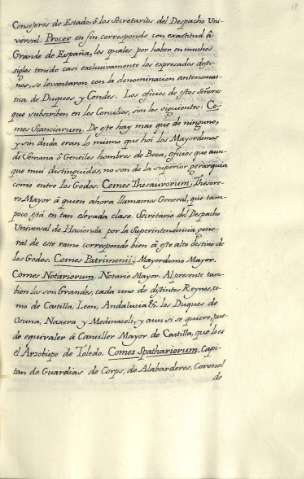 Consejeros de Estado, ó los Secretarios del Despacho Uni-
versal. Procer en fin corresponde con exactitud á
Grande de España, los quales por haber en muchos
siglos tenido casi exclusivamente los expresados desti-
nos, se levantaron con la denominacion antonomas-
tica de Duques y Condes. Los oficios de estos Señores
que subscriben en los Concilios, son los siguientes: Co-
mes Scanciarum. De este hay mas que de ninguno,
y sin duda eran lo mismo que hoi los Mayordomos
de Semana ó Gentiles hombres de Boca, oficios que aun-
que mui distinguidos, no son de la superior gerarquia
como entre los Godos. Comes Thesaurorum, Thesore-
ro Mayor á quien ahora llamamos General, que tam-
poco está en tan elevada clase. Secretario del Despacho
Universal de Hacienda por la Superintendencia gene-
ral de este ramo corresponde bien á este alto destino de
los Godos. Comes Patrimonii, Mayordomo Mayor.
Comes Notariorum. Notario Mayor. Al presente tam-
bien lo son Grandes, cada uno de distintos Reynos, co-
mo de Castilla, Leon, Andalucia &. los Duques de
Osuna, Naxera y Medinaceli, y aun si se quiere, pue-
de equivaler á Canciller Mayor de Castilla, que lo es
el Arzobispo de Toledo. Comes Spathariorum, Capi-
tan de Guardias de Corps, de Alabarderos, Coronel
de